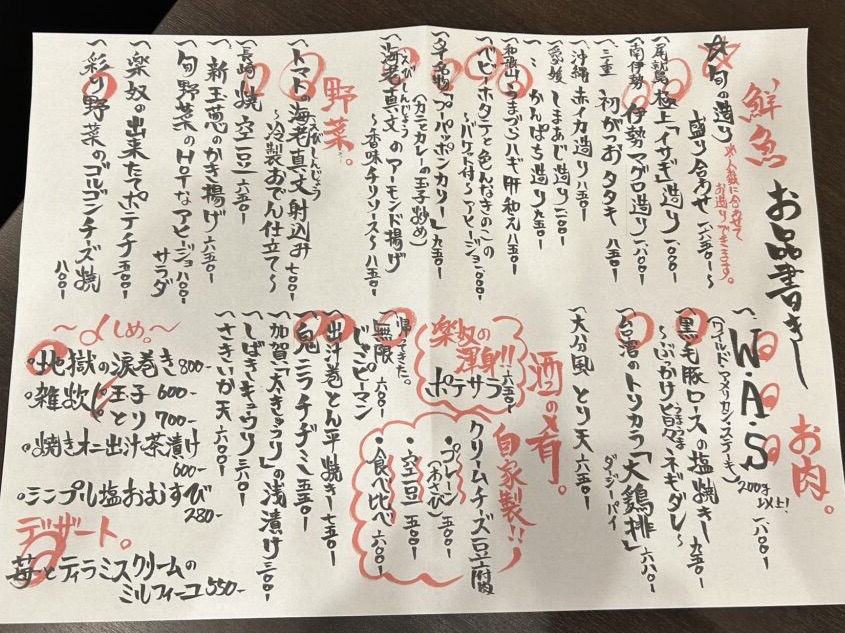 お品書き
鮮魚
☆旬の造り
盛り合わせ 一六五〇~
※人数に合わせて
お造りできます。
一、尾鷲 極上「イサギ」造り 一〇〇〇
一、南伊勢 伊勢マグロ造り 一八〇〇
一、三重 初がつおタタキ 八五〇
一、沖縄 赤イカ造り 八五〇
一、愛媛 しまあじ造り 一一〇〇
一、〃 かんぱち造り 九五〇
一、和歌山 うまづらハギ肝和え 八五〇
一、ベビーホタテと色んなきのこの
~バケット付~アヒージョ 一〇〇〇
プーパッポンカリー 九五〇
(カニとカレーの玉子炒め)
一、海老真丈のアーモンド揚げ
えびしんじょう
~香味チリソース~ 八五〇
野菜。
一、トマトの海老真丈射込み 七〇〇
えびしんじょう
~冷製おでん仕立て~
一、長崎 焼空豆 六五〇
一、新玉葱のかき揚げ 六五〇
一、旬野菜のHOTなアヒージョ 八〇〇
サラダ
一、楽奴の出来たてポテチ 五〇〇
一、彩り野菜のゴルゴンチーズ焼
八〇〇
お肉。
一、W.A.S
(ワイルド・アメリカン・ステーキ)
200g以上! 一八〇〇
一、黒毛豚ロースの塩焼き 九五〇
~ぶっかけ旨々ネギダレ~
うまうま
一、台湾のトリカラ「大鶏排」 六八〇
ダージーパイ
一、大分風とり天 六五〇
酒の肴。
楽奴の
渾身!!
ポテサラ 六五〇
自家製!!
クリームチーズ豆腐
・プレーン 五〇〇
(わさび)
・空豆 五〇〇
・食べ比べ 六〇〇
帰ってきた。
無限 六〇〇
じゃこピーマン
一、出汁巻とん平焼き 七五〇
一、鬼ニラチヂミ 五五〇
一、加賀「太きゅうり」の浅漬け 三〇〇
一、しばきキュウリ 三八〇
一、さきいか天 六〇〇
~〆しめ。~
・地獄の涙巻き 800-
・雑炊 玉子 600-
とり 700-
・焼きオニ出汁茶漬け
600-
・シンプル塩おむすび
280-
デザート。
苺とティラミスクリームの
ミルフィーユ 550-